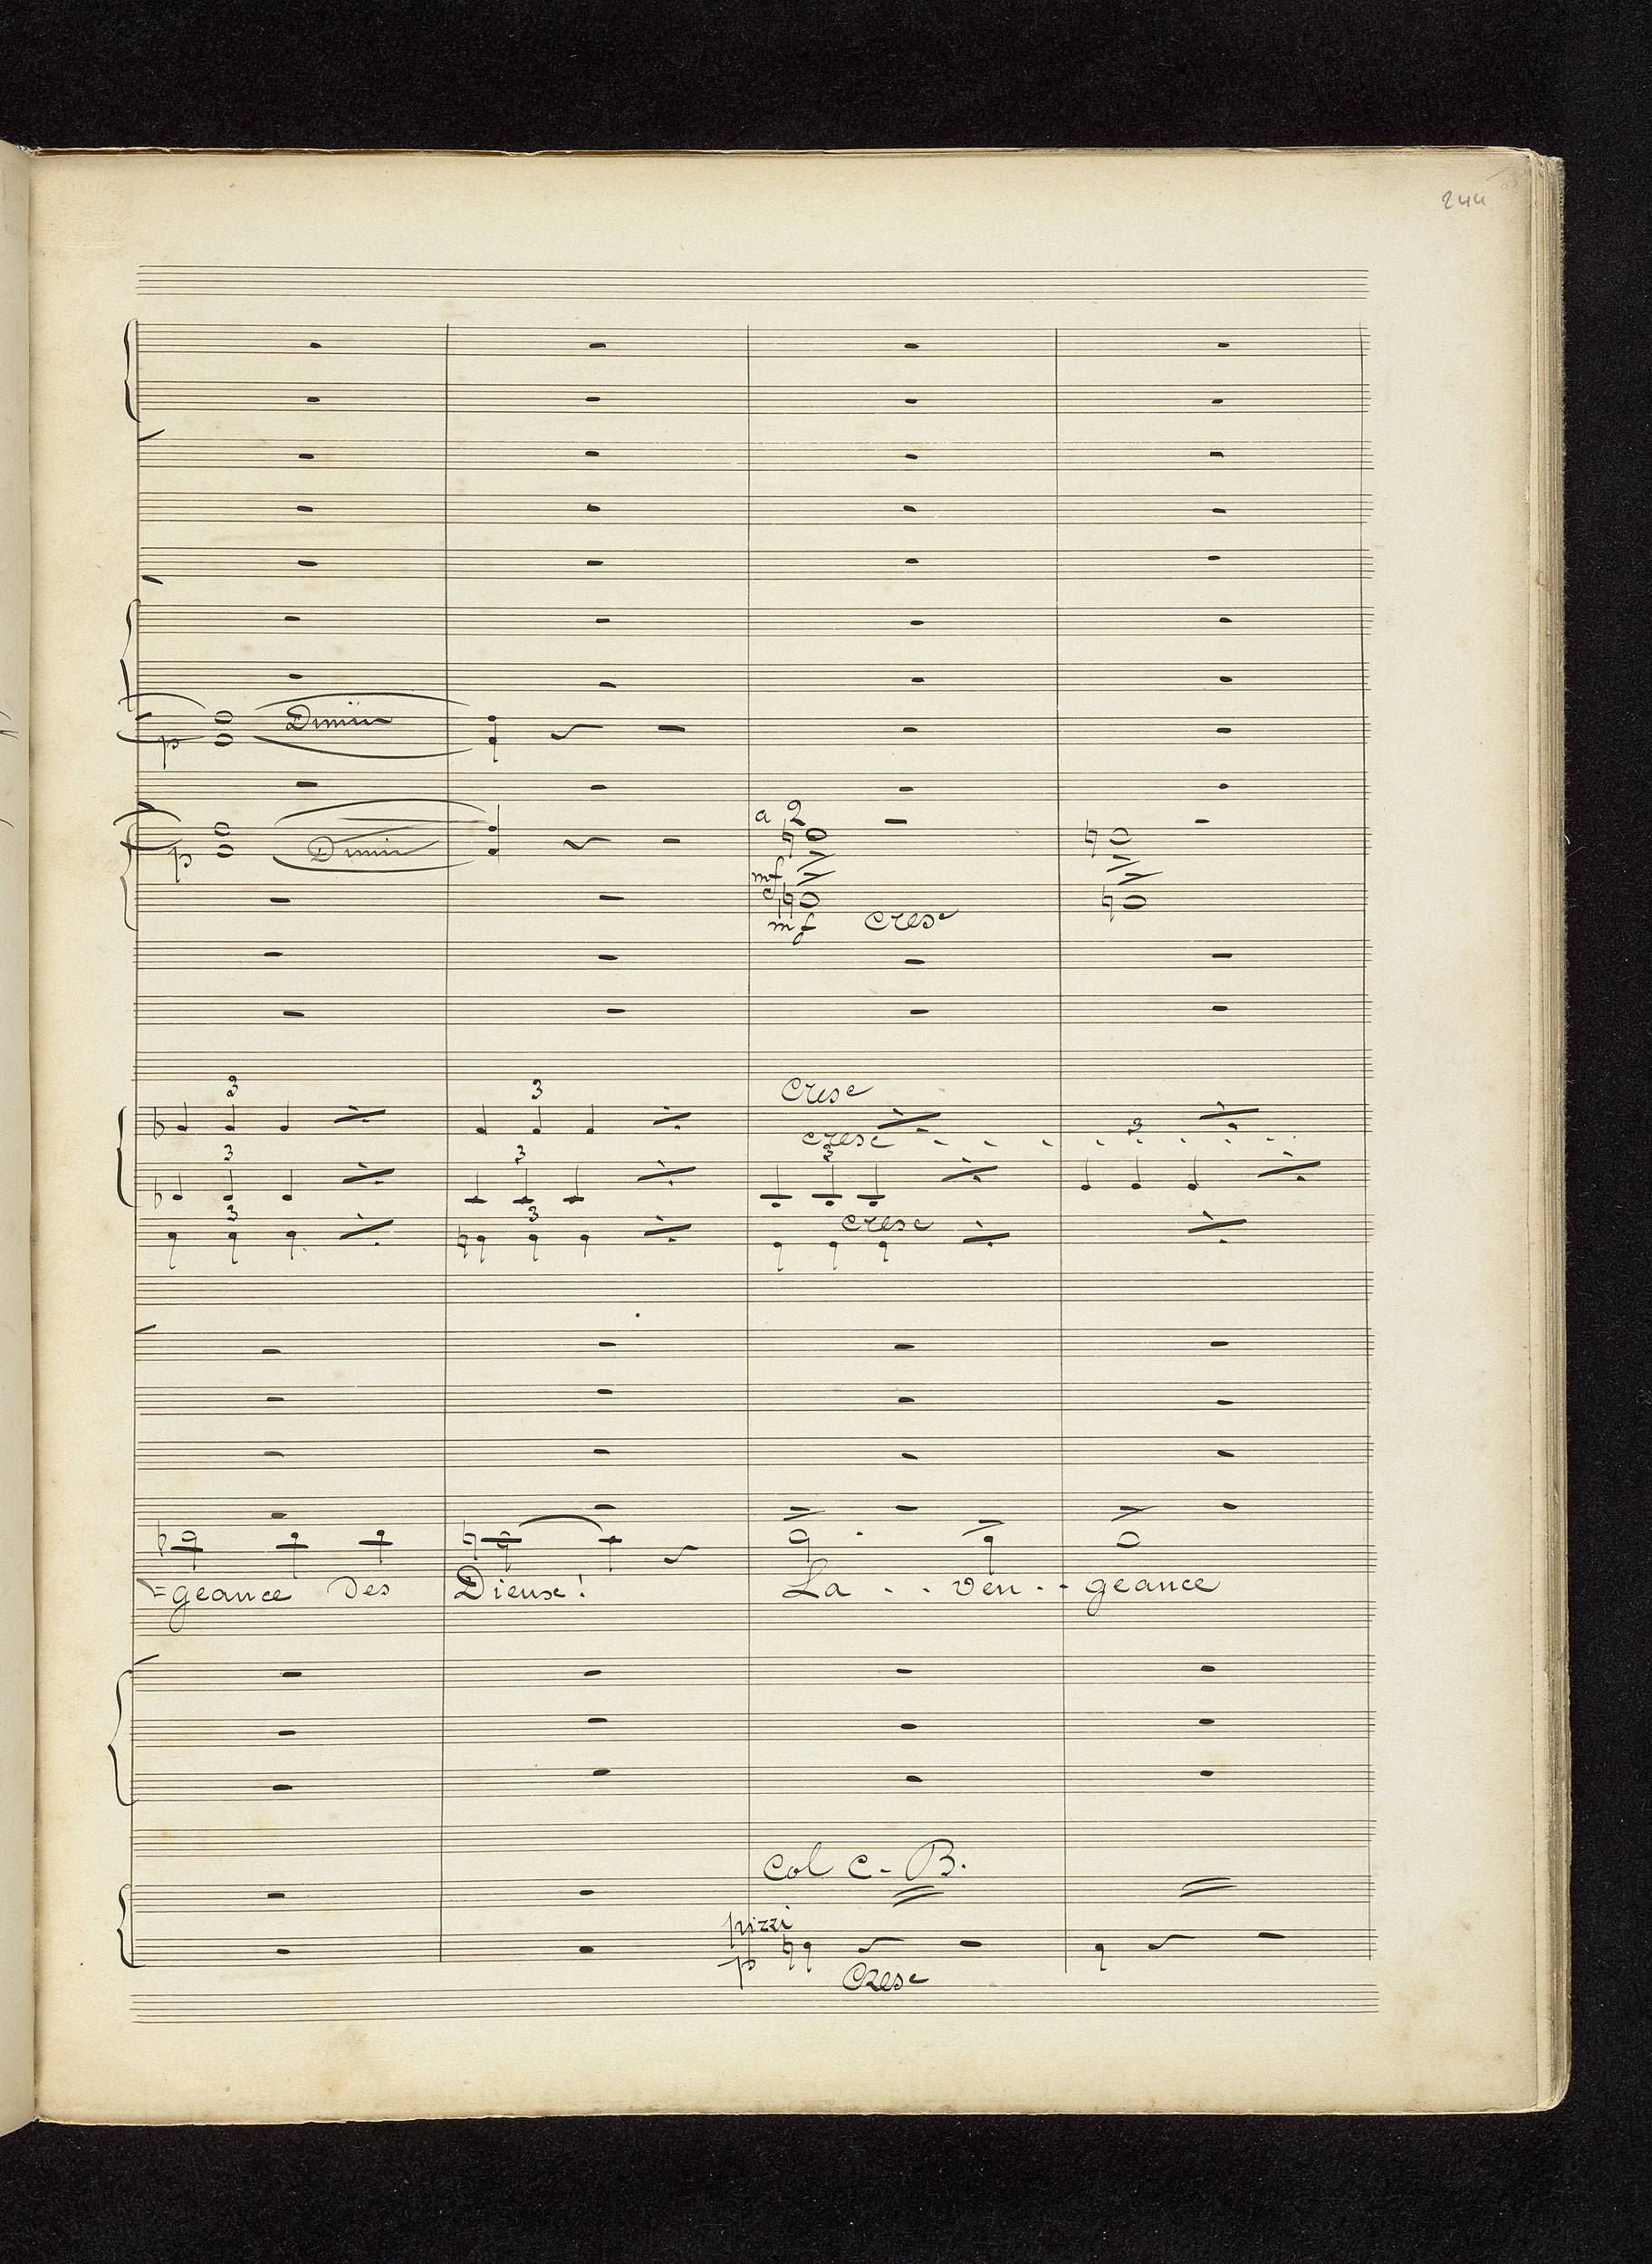 244
Dimin
p
a 2
Dimin
p
mf
mf cresc
3 3 Cresc
cresc 3
3 3 3
3 3 cresc
=geance des Dieux! La . . ven . . geance
Col C-B.
pizzi
p Cresc